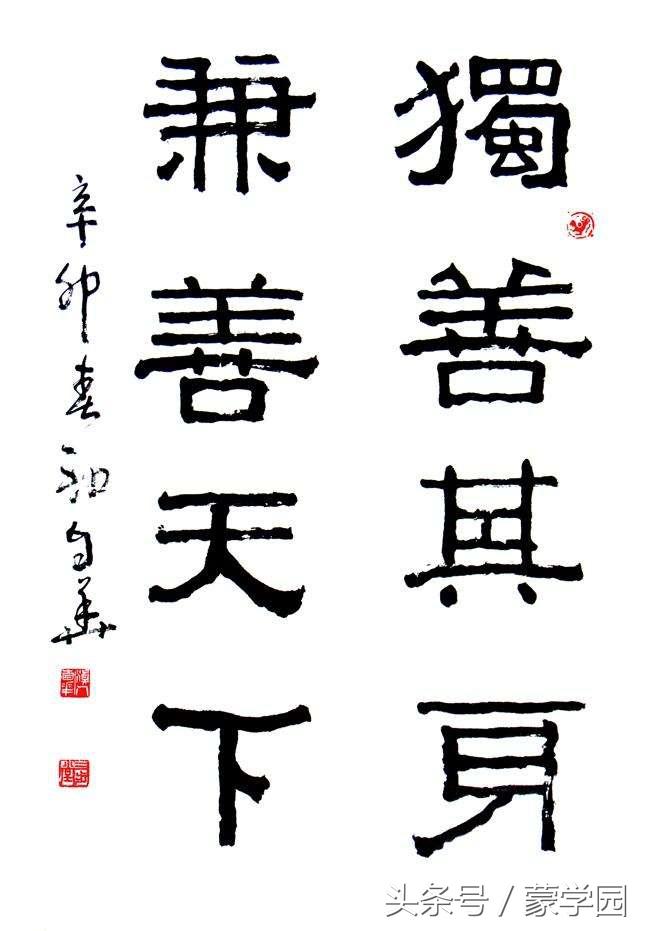 獨善其身
兼善天下
辛卯春初自華
头条号 / 蒙学园